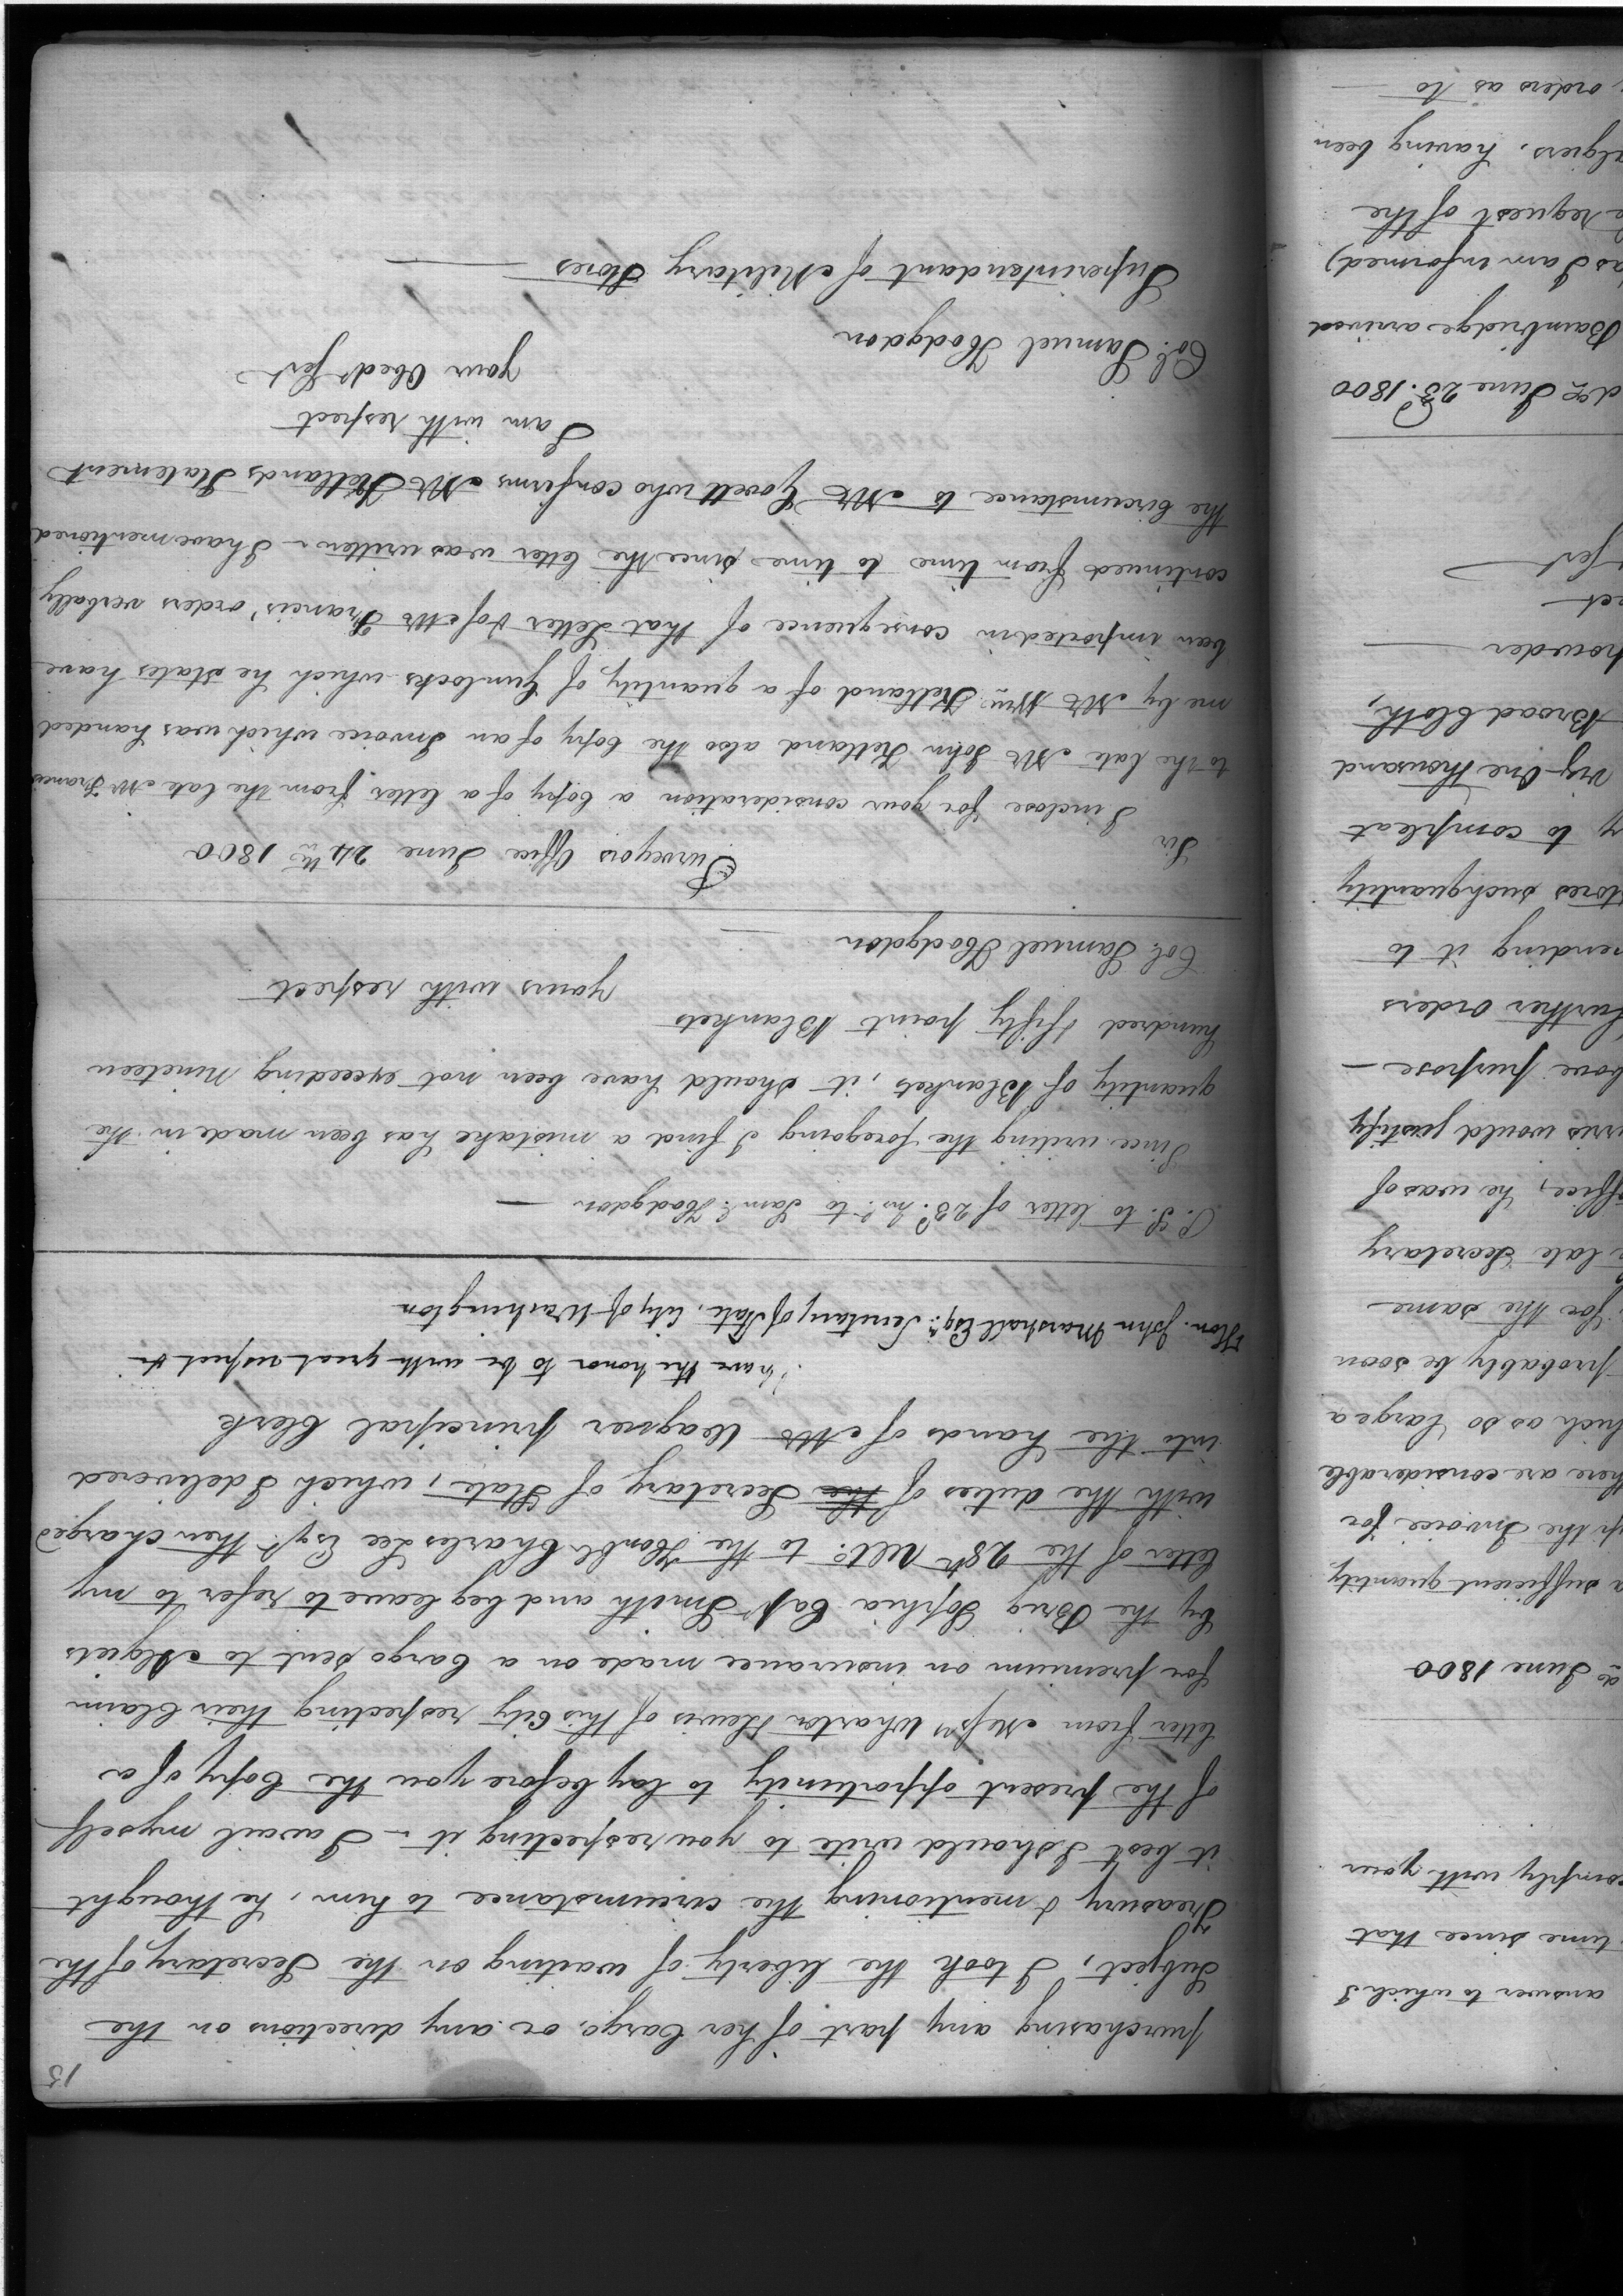 answer to which I
time since that
comply with your
June 1800
a sufficient quantity
up the Invoice for
there are considerable
which as so large a
probably be soon
for the same
late Secretary
office, he was of
would justify
purpose —
further Orders
sending it to
stores such quantity
to compleat
Viz One thousand
Broad Cloth,
powder
Sert
June 23d. 1800
Bainbridge arrived
as I am informed)
request of the
Algiers, having been
orders as to
15
purchasing any part of her Cargo, or any directions on the
Subject, I took the liberty of waiting on the Secretary of the
Treasury & mentioning the circumstance to him, he thought
it best I should write to you respecting it – I avail myself
of the present oppartunity to lay before you the Copy of a
letter from Messrs Wharton & Lewis of this City respecting their Claim
for premium on insurance made on a Cargo sent to Algiers
by the Brig Sophia Capt Smith and beg leave to refer to my
letter of the 28th Ulto. to the Honble Charles Lee Esqr. then charged
with the duties of the Secretary of State, which I delivered
into the hands of Mr Wagner principal Clerk
I have the honor to be with great respect &c
Hon. John Marshall Esqr. Secretary of State, City of Washington
P.S. to letter of 23d. Inst. to Saml. Hodgdon —
Since writing the foregoing I find a mistake has been made in the
quantity of Blankets, it should have been not exceeding Nineteen
hundred & fifty point Blankets
yours with respect
Col. Samuel Hodgdon —
Purveyors Office June 24th 1800
Sir
I inclose for your consideration a Copy of a letter from the late Mr Francis
to the late Mr John Ketland also the Copy of an Invoice which was handed
me by Mr Wm Ketland of a quantity of Gunlocks which he states have
been imported in consequence of that Letter & of Mr Francis' orders verbally
continued from time to time since the letter was written – I have mentioned
the Circumstance to Mr Govett who confirms Mr Ketlands Statement
I am with respect
your Obedt Sert
Col. Samuel Hodgdon
Superintendant of Military Stores —